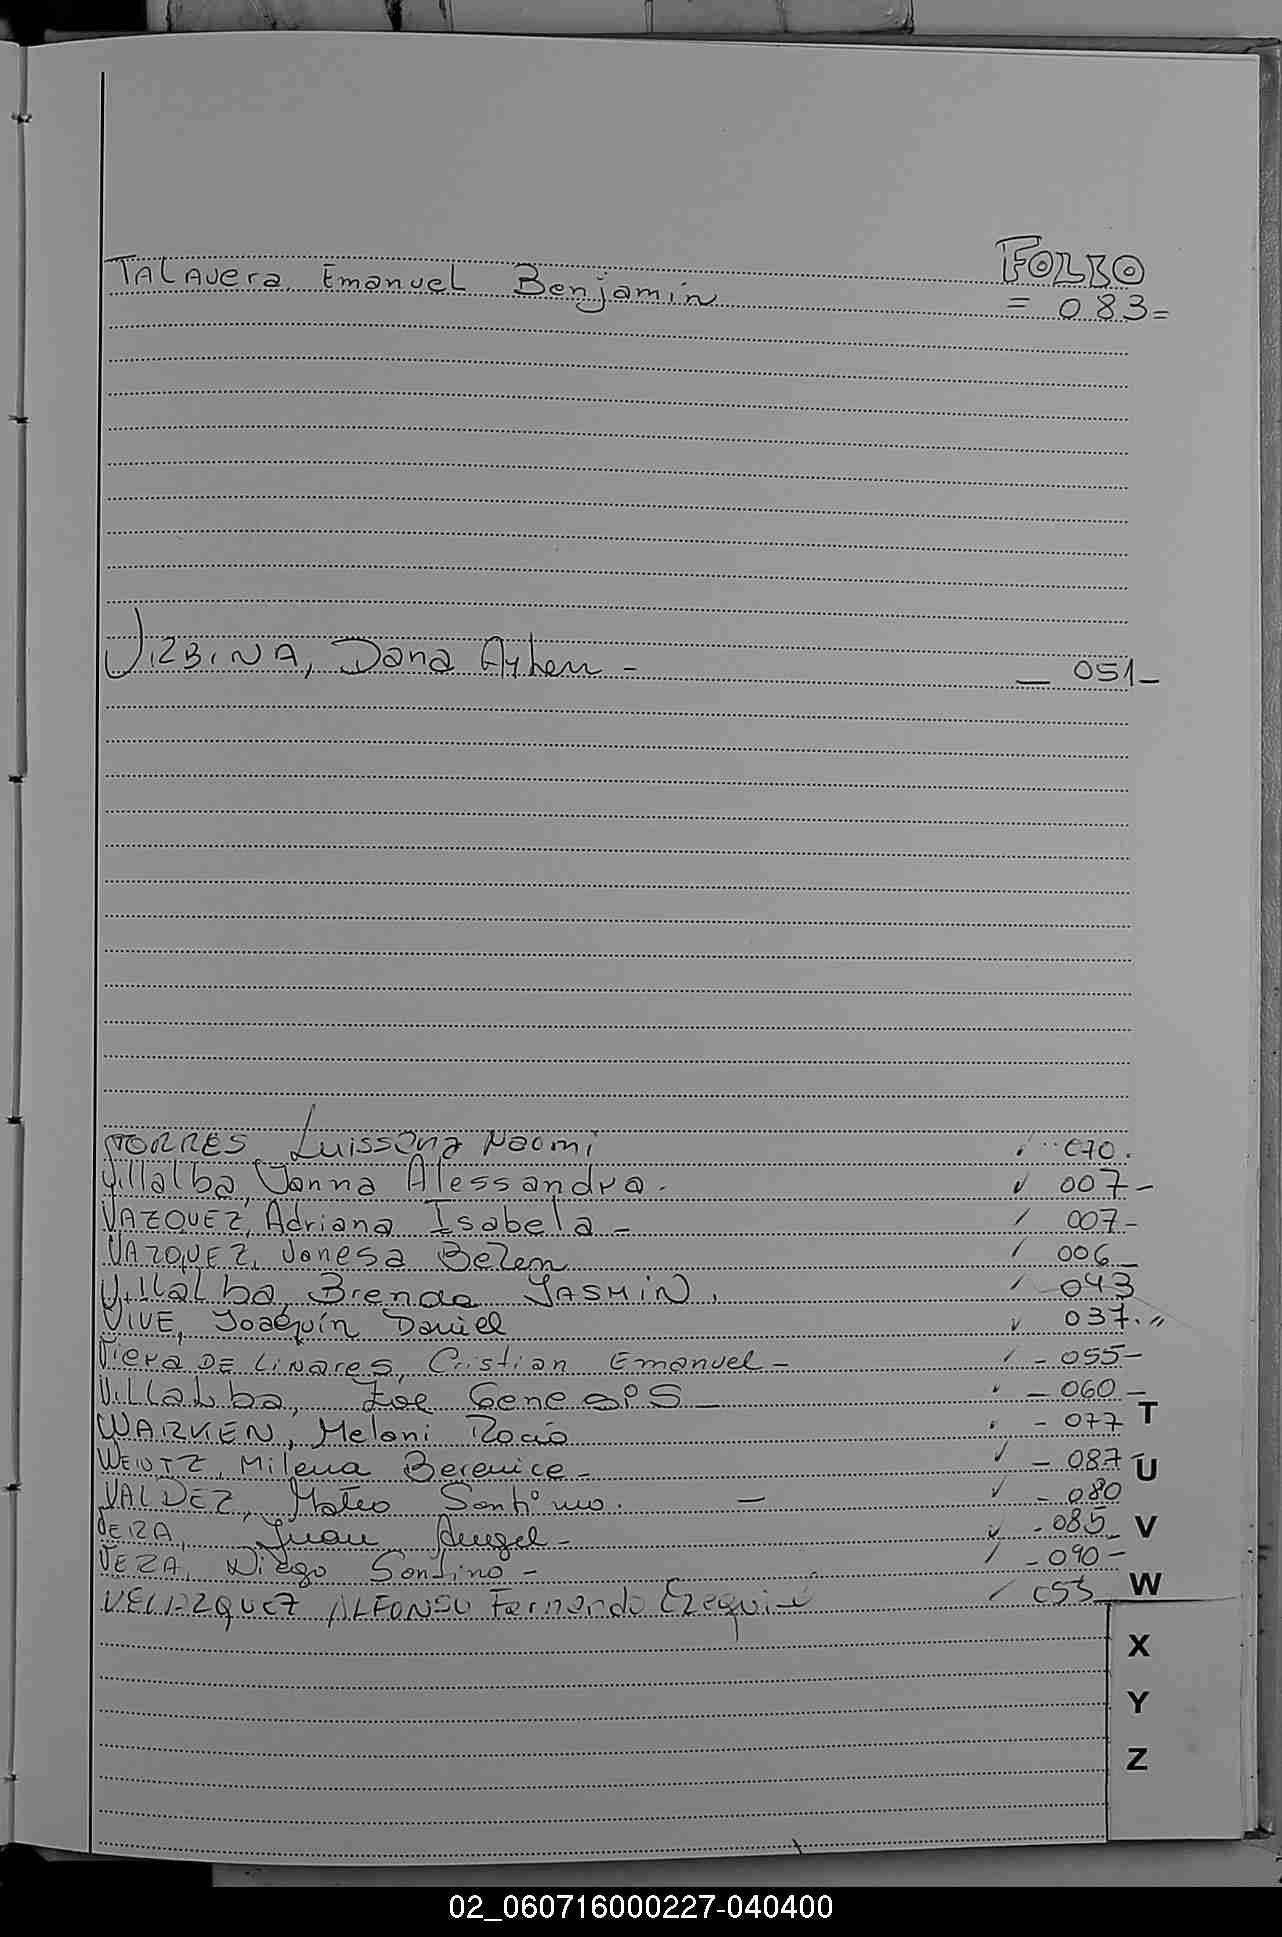 FOLIO
Talavera, Emanuel Benjamín = 083=
URBINA, Dana Aylen - _ 051_
TORRES Luissana Naomi ✓ 070.
Villalba, Vanna Alessandra. ✓ 007-
VAZQUEZ, Adriana Isabela - ✓ 007-
VAZQUEZ, Vanesa Belen ✓ 006_
Villalba, Brenda YASMIN. ✓ 043
VIVE, Joaquín Daniel ✓ 037.〃
Viera DE LINARES, Cristian Emanuel - ✓ - 055-
Villalba, Zoe Genesis _ ✓ - 060 -
WARKEN, Melani Rocio - 077
WENTZ, Milena Berenice - ✓ - 087-
VALDEZ, Mateo Santino. — ✓ - 080
VERA, Juan Angel - ✓ - 085_
VERA, Diego Santino - ✓ - 090-
VELAZQUEZ ALFONSO Fernando Ezequiel ✓ 053
T
U
V
W
X
Y
Z
02_060716000227-040400